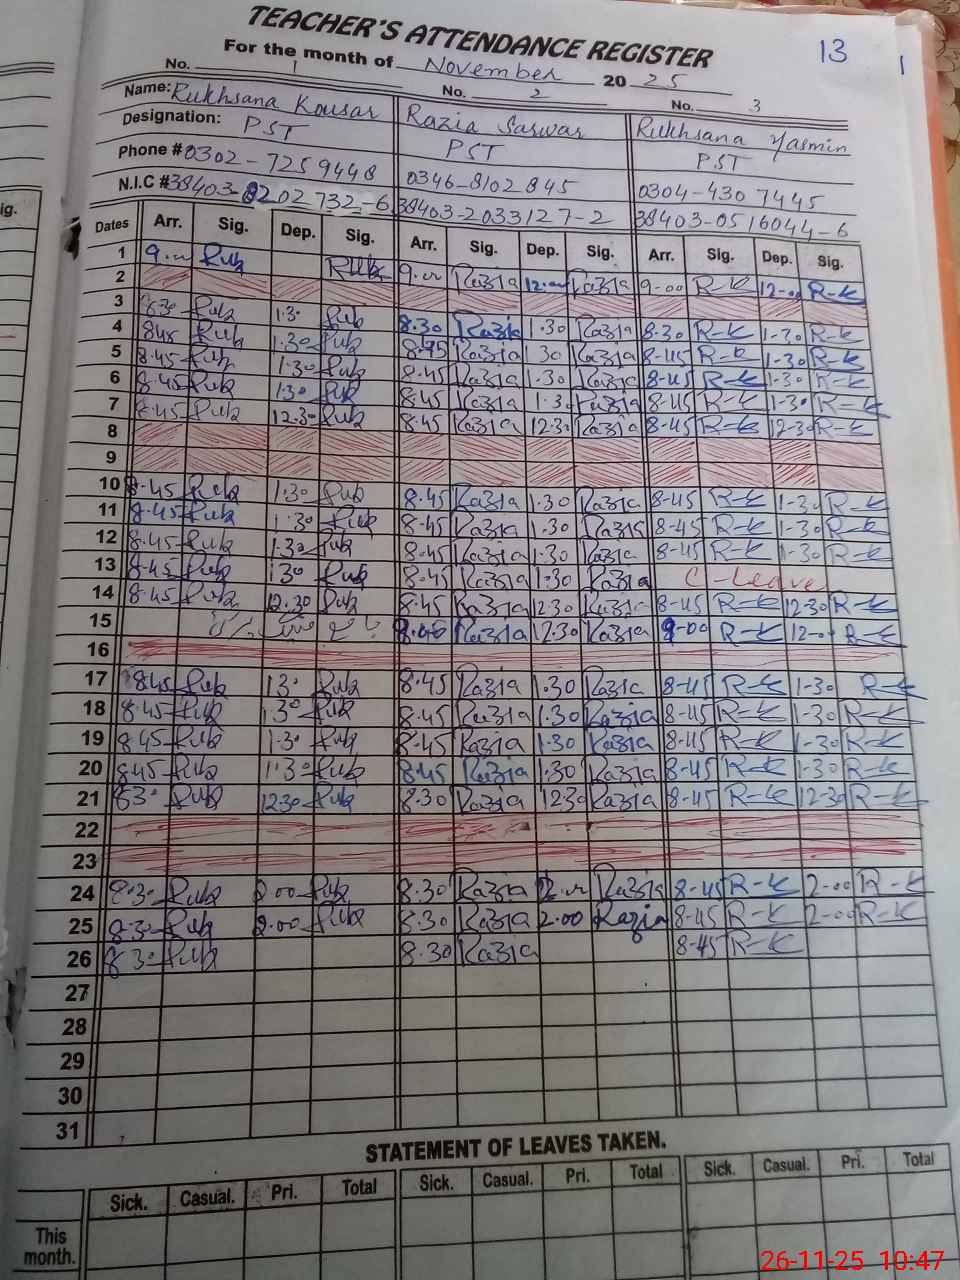 TEACHER'S ATTENDANCE REGISTER
13
For the month of November 20 25
No. 1 No. 2 No. 3
Name: Rukhsana Kousar Razia Sarwar Rukhsana Yasmin
Designation: PST PST PST
Phone # 0302-7259448 0346-8102845 0304-430 7445
N.I.C # 38403-8202732-6 38403-2033127-2 38403-0516044-6
ig.
Dates Arr. Sig. Dep. Sig. Arr. Sig. Dep. Sig. Arr. Sig. Dep. Sig.
1 9.00 Ruk Ruk 9.00 Razia 12.00 Razia 9-00 R-K 12-00 R-K
2
3 830 Ruk 1.30 Ruk 8.30 Razia 1.30 Razia 8-30 R-K 1-30 R-K
4 845 Ruk 1.30 Ruk 8.45 Razia 1.30 Razia 8-45 R-K 1-30 R-K
5 8.45 Ruk 1.30 Ruk 8.45 Razia 1.30 Razia 8-45 R-K 1-30 R-K
6 8.45 Ruk 1.30 Ruk 8.45 Razia 1.30 Razia 8-45 R-K 1-30 R-K
7 8.45 Ruk 12.30 Ruk 8.45 Razia 12.30 Razia 8-45 R-K 12-30 R-K
8
9
10 8.45 Ruk 1.30 Ruk 8.45 Razia 1.30 Razia 8-45 R-K 1-30 R-K
11 8.45 Ruk 1.30 Ruk 8.45 Razia 1.30 Razia 8-45 R-K 1-30 R-K
12 8.45 Ruk 1.30 Ruk 8.45 Razia 1.30 Razia 8-45 R-K 1-30 R-K
13 8.45 Ruk 130 Ruk 8.45 Razia 1.30 Razia C-Leave
14 8.45 Ruk 12.30 Ruk 8.45 Razia 12.30 Razia 8-45 R-K 12-30 R-K
15 Razia 12.30 Razia 9-00 R-K 12-00 R-K
16
17 845 Ruk 130 Ruk 8.45 Razia 1.30 Razia 8-45 R-K 1-30 R-K
18 8.45 Ruk 1.30 Ruk 8.45 Razia 1.30 Razia 8-45 R-K 1-30 R-K
19 8.45 Ruk 1.30 Ruk 8.45 Razia 1.30 Razia 8-45 R-K 1-30 R-K
20 8.45 Ruk 1.30 Ruk 8.45 Razia 1.30 Razia 8-45 R-K 1-30 R-K
21 830 Ruk 12.30 Ruk 8.30 Razia 1230 Razia 8-45 R-K 12-30 R-K
22
23
24 8.30 Ruk 2.00 Ruk 8.30 Razia 2.00 Razia 8-45 R-K 2-00 R-K
25 8.30 Ruk 2.00 Ruk 8.30 Razia 2.00 Razia 8-45 R-K 2-00 R-K
26 830 Ruk 8.30 Razia 8-45 R-K
27
28
29
30
31
STATEMENT OF LEAVES TAKEN.
Sick. Casual. Pri. Total Sick. Casual. Pri. Total Sick. Casual. Pri. Total
This
month.
26-11-25 10:47